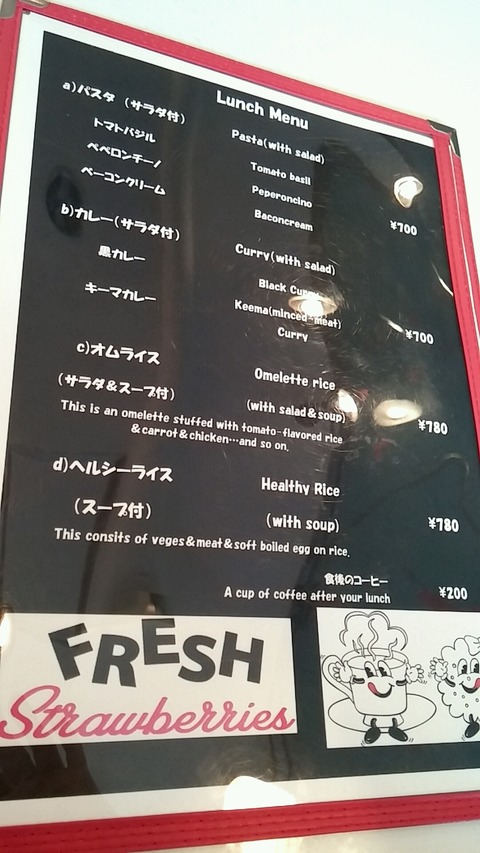 Lunch Menu
a)パスタ（サラダ付）
Pasta(with salad)
トマトバジル
Tomato basil
ペペロンチーノ
Peperoncino
ベーコンクリーム
Baconcream
¥700
b)カレー(サラダ付)
Curry(with salad)
黒カレー
Black Curry
キーマカレー
Keema(minced-meat)
Curry
¥700
c)オムライス
Omelette rice
(サラダ&スープ付)
(with salad&soup)
¥780
This is an omelette stuffed with tomato-flavored rice
&carrot&chicken…and so on.
d)ヘルシーライス
Healthy Rice
(スープ付)
(with soup)
¥780
This consits of veges&meat&soft boiled egg on rice.
食後のコーヒー
A cup of coffee after your lunch
¥200
FRESH
Strawberries